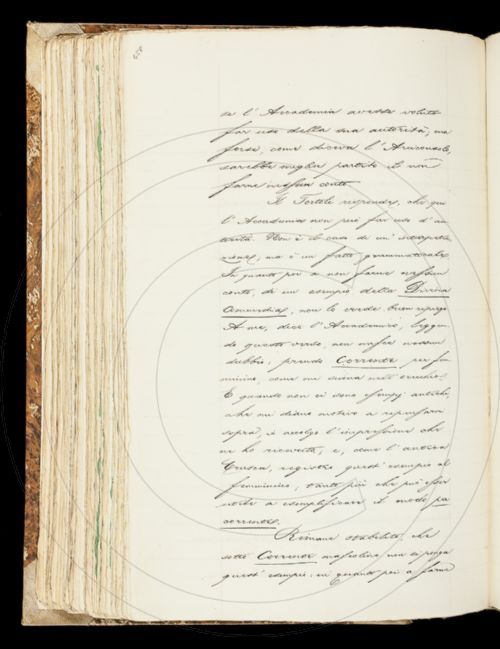 se l' Accademia avesse voluto
far uso della sua autorità; ma
forse, come diceva l' Arciconsolo,
sarebbe meglio partito il non
farne nessun conto.
Il Tortoli risponde, che qui
l' Accademia non può far uso d' au-
torità. Non è il caso di un' interpreta-
zione, ma è un fatto grammaticale.
In quanto poi a non farne nessun
conto, di un esempio della Divina
Commedia, non lo crede buon ripiego.
A me, dice l' Accademico, leggen-
do questo verso, non nasce nessun
dubbio; prendo Corrente per fem-
minino, come mi suona nell' orecchio.
E quando non ci sono esempj antichi,
che mi diano motivo a ripensarci
sopra, io accolgo l' impressione che
ne ho ricevuta, e, come l' antica
Crusca, registro quest' esempio al
femminino; tanto più che può esser
utile a esemplificare il modo La
corrente.
Rimane stabilito, che
sotto Corrente mascolino non si ponga
quest' esempio: in quanto poi a farne